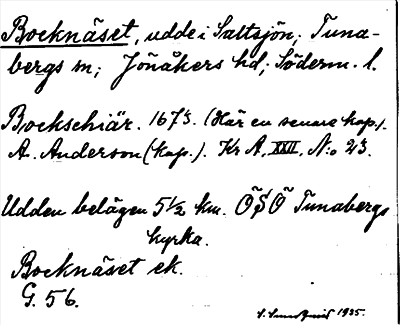 Bocknäset, udde i Saltsjön; Tuna-
bergs sn; Jönåkers hd; Söderm. l.
Bockschiär. 1673. (Här en senare kop.).
A. Anderson (kop.). Kr A, XXII, No 23.
Udden belägen 5 1/2 km. ÖSÖ Tunabergs
kyrka.
Bocknäset ek.
G. 56.
1935.